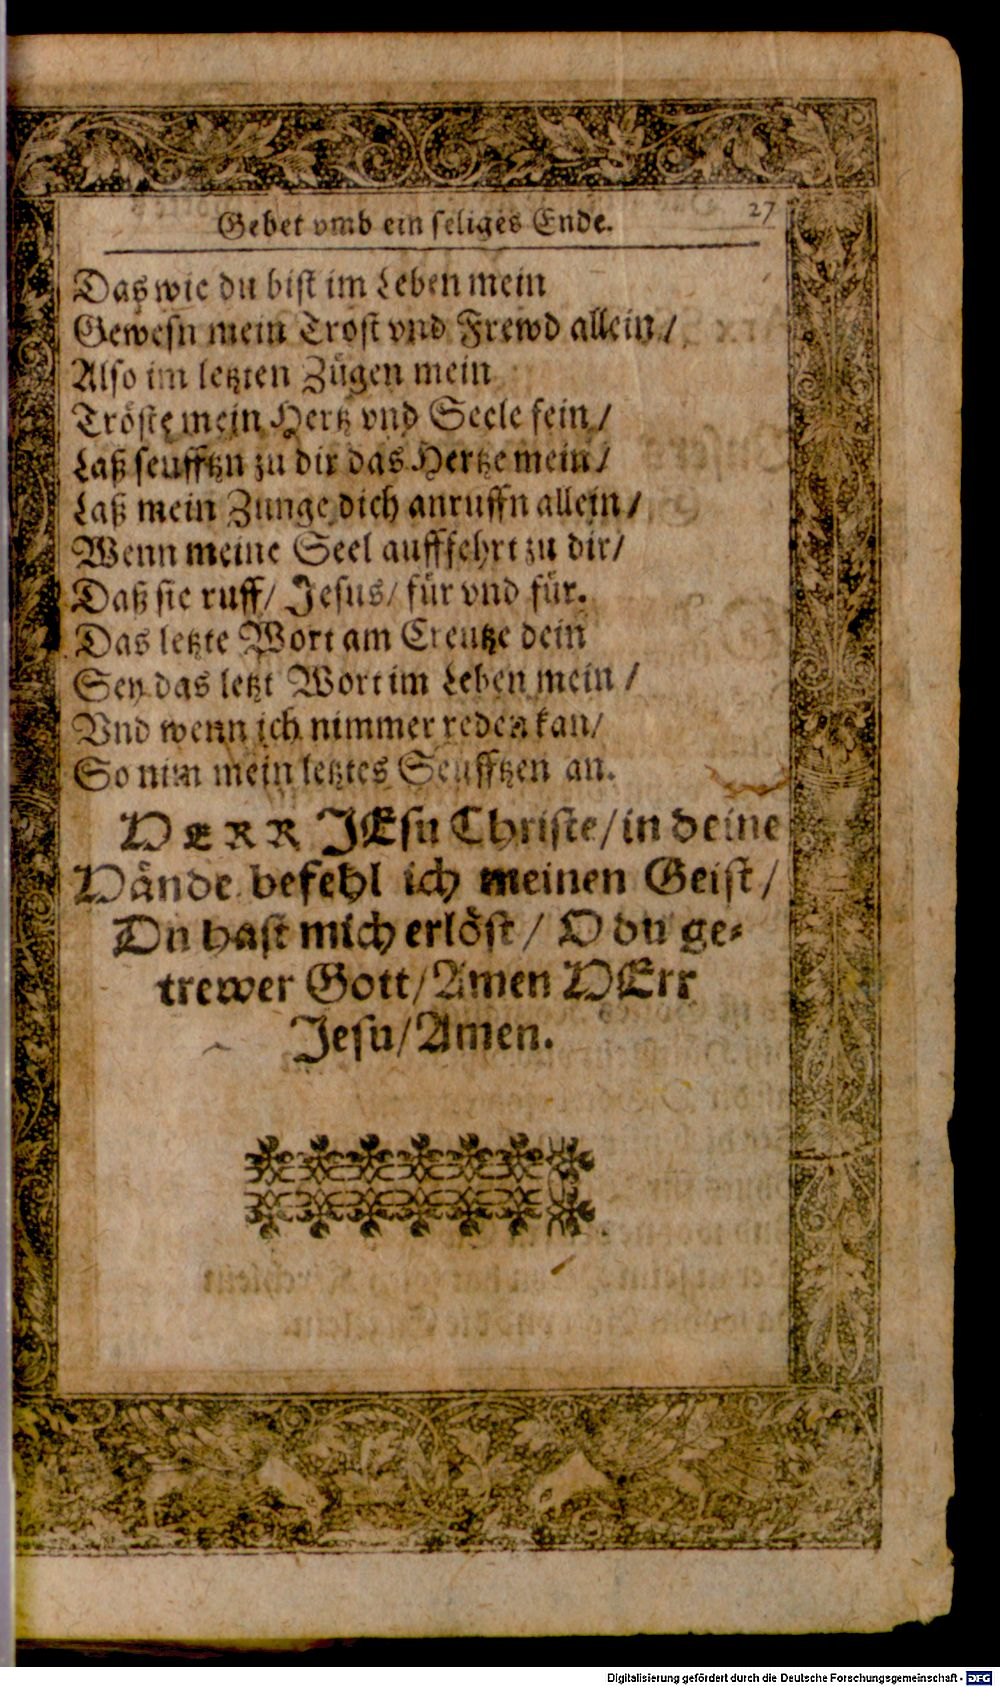 27
Gebet vmb ein seliges Ende.
Daß wie du bist im Leben mein
Gewesn mein Trost vnd Frewd allein /
Also im letzten Zügen mein
Tröste mein Hertz vnd Seele fein /
Laß seufftzn zu dir das Hertze mein /
Laß mein Zunge dich anruffn allein /
Wenn meine Seel aufffehrt zu dir /
Daß sie ruff / Jesus / für vnd für.
Das letzte Wort am Creutze dein
Sey das letzt Wort im Leben mein /
Vnd wenn ich nimmer reden kan /
So nim mein letztes Seufftzen an.
HERR JEsu Christe / in deine
Hände befehl ich meinen Geist /
Du hast mich erlöst / O du ge-
trewer Gott / Amen HErr
Jesu / Amen.
Digitalisierung gefördert durch die Deutsche Forschungsgemeinschaft - DFG